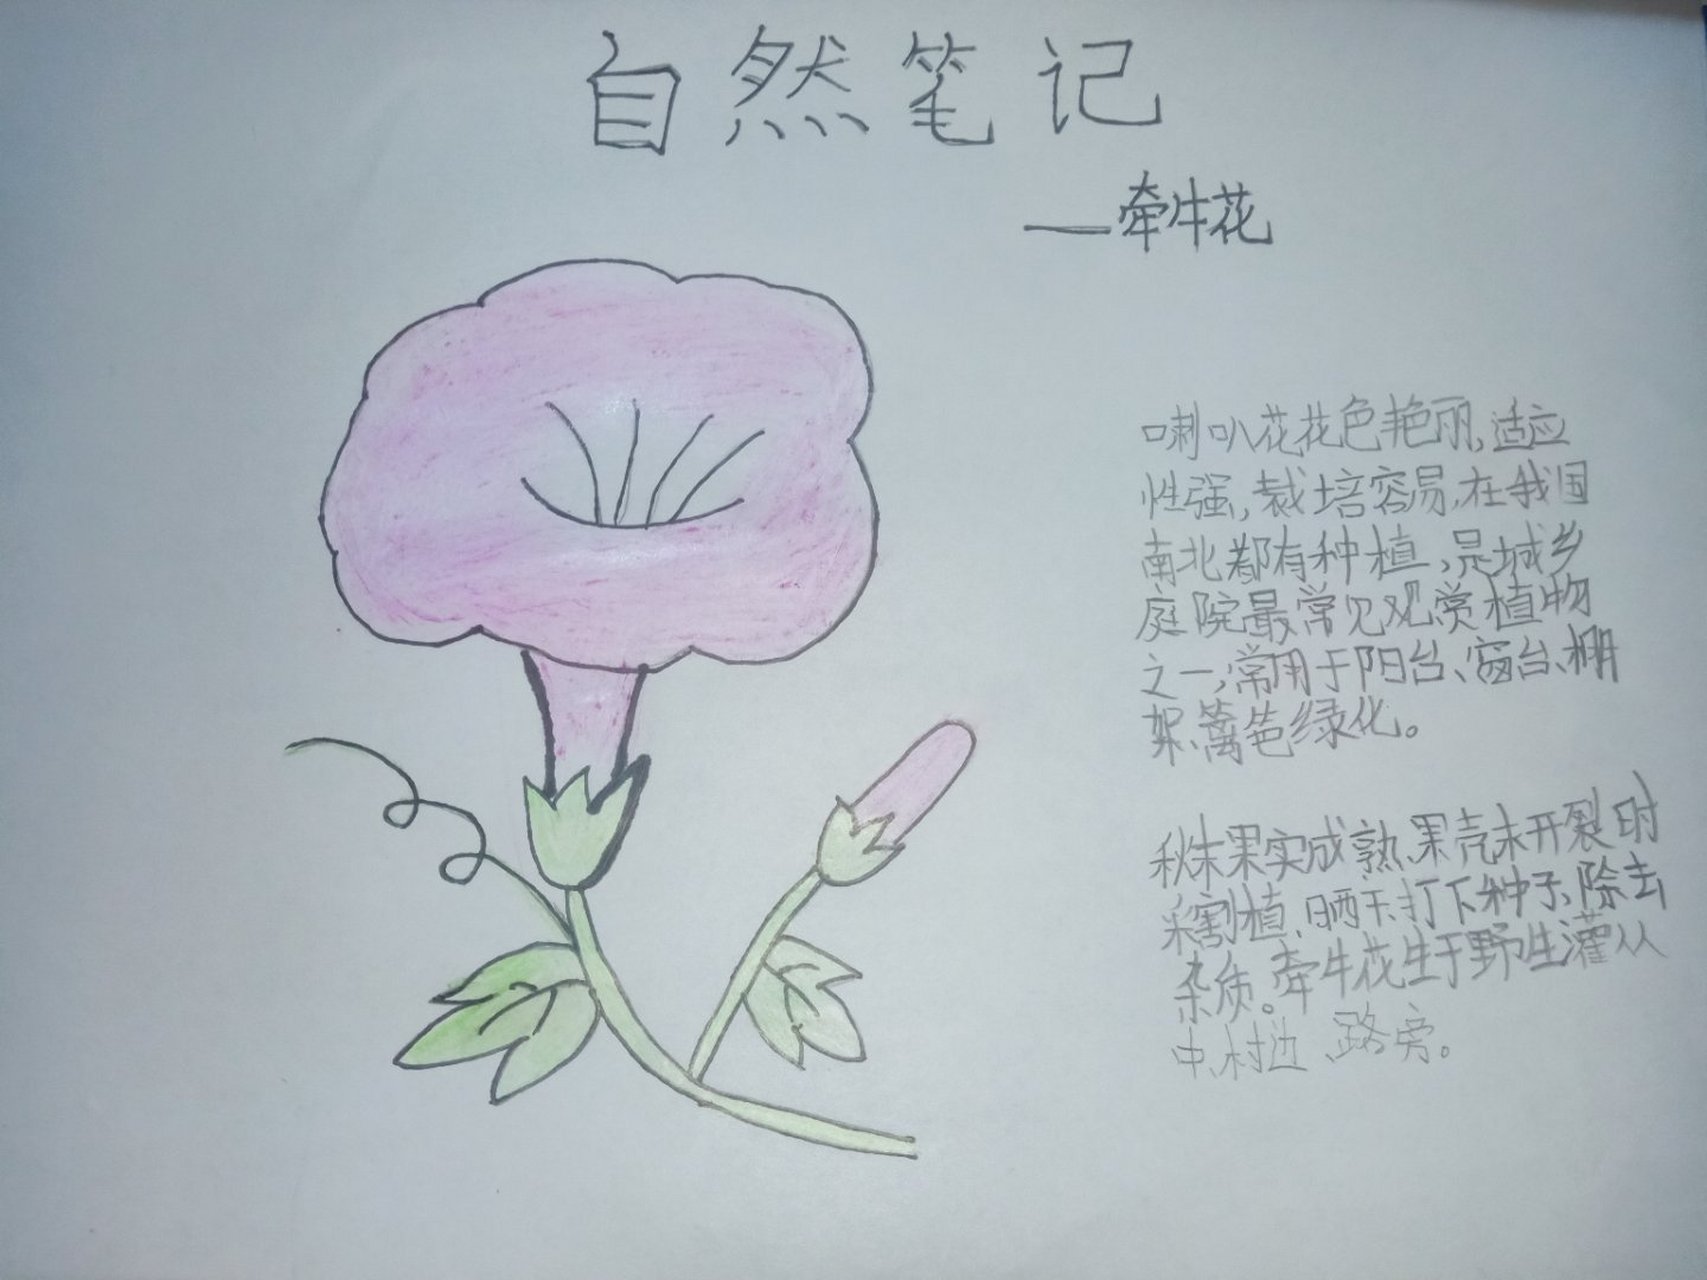 自然笔记
—牵牛花
喇叭花花色艳丽,适应
性强,栽培容易,在我国
南北都有种植,是城乡
庭院最常见观赏植物
之一,常用于阳台、窗台、棚
架、篱笆绿化。
秋末果实成熟、果壳未开裂时
采割植、晒干、打下种子、除去
杂质。牵牛花生于野生灌丛
中、村边、路旁。